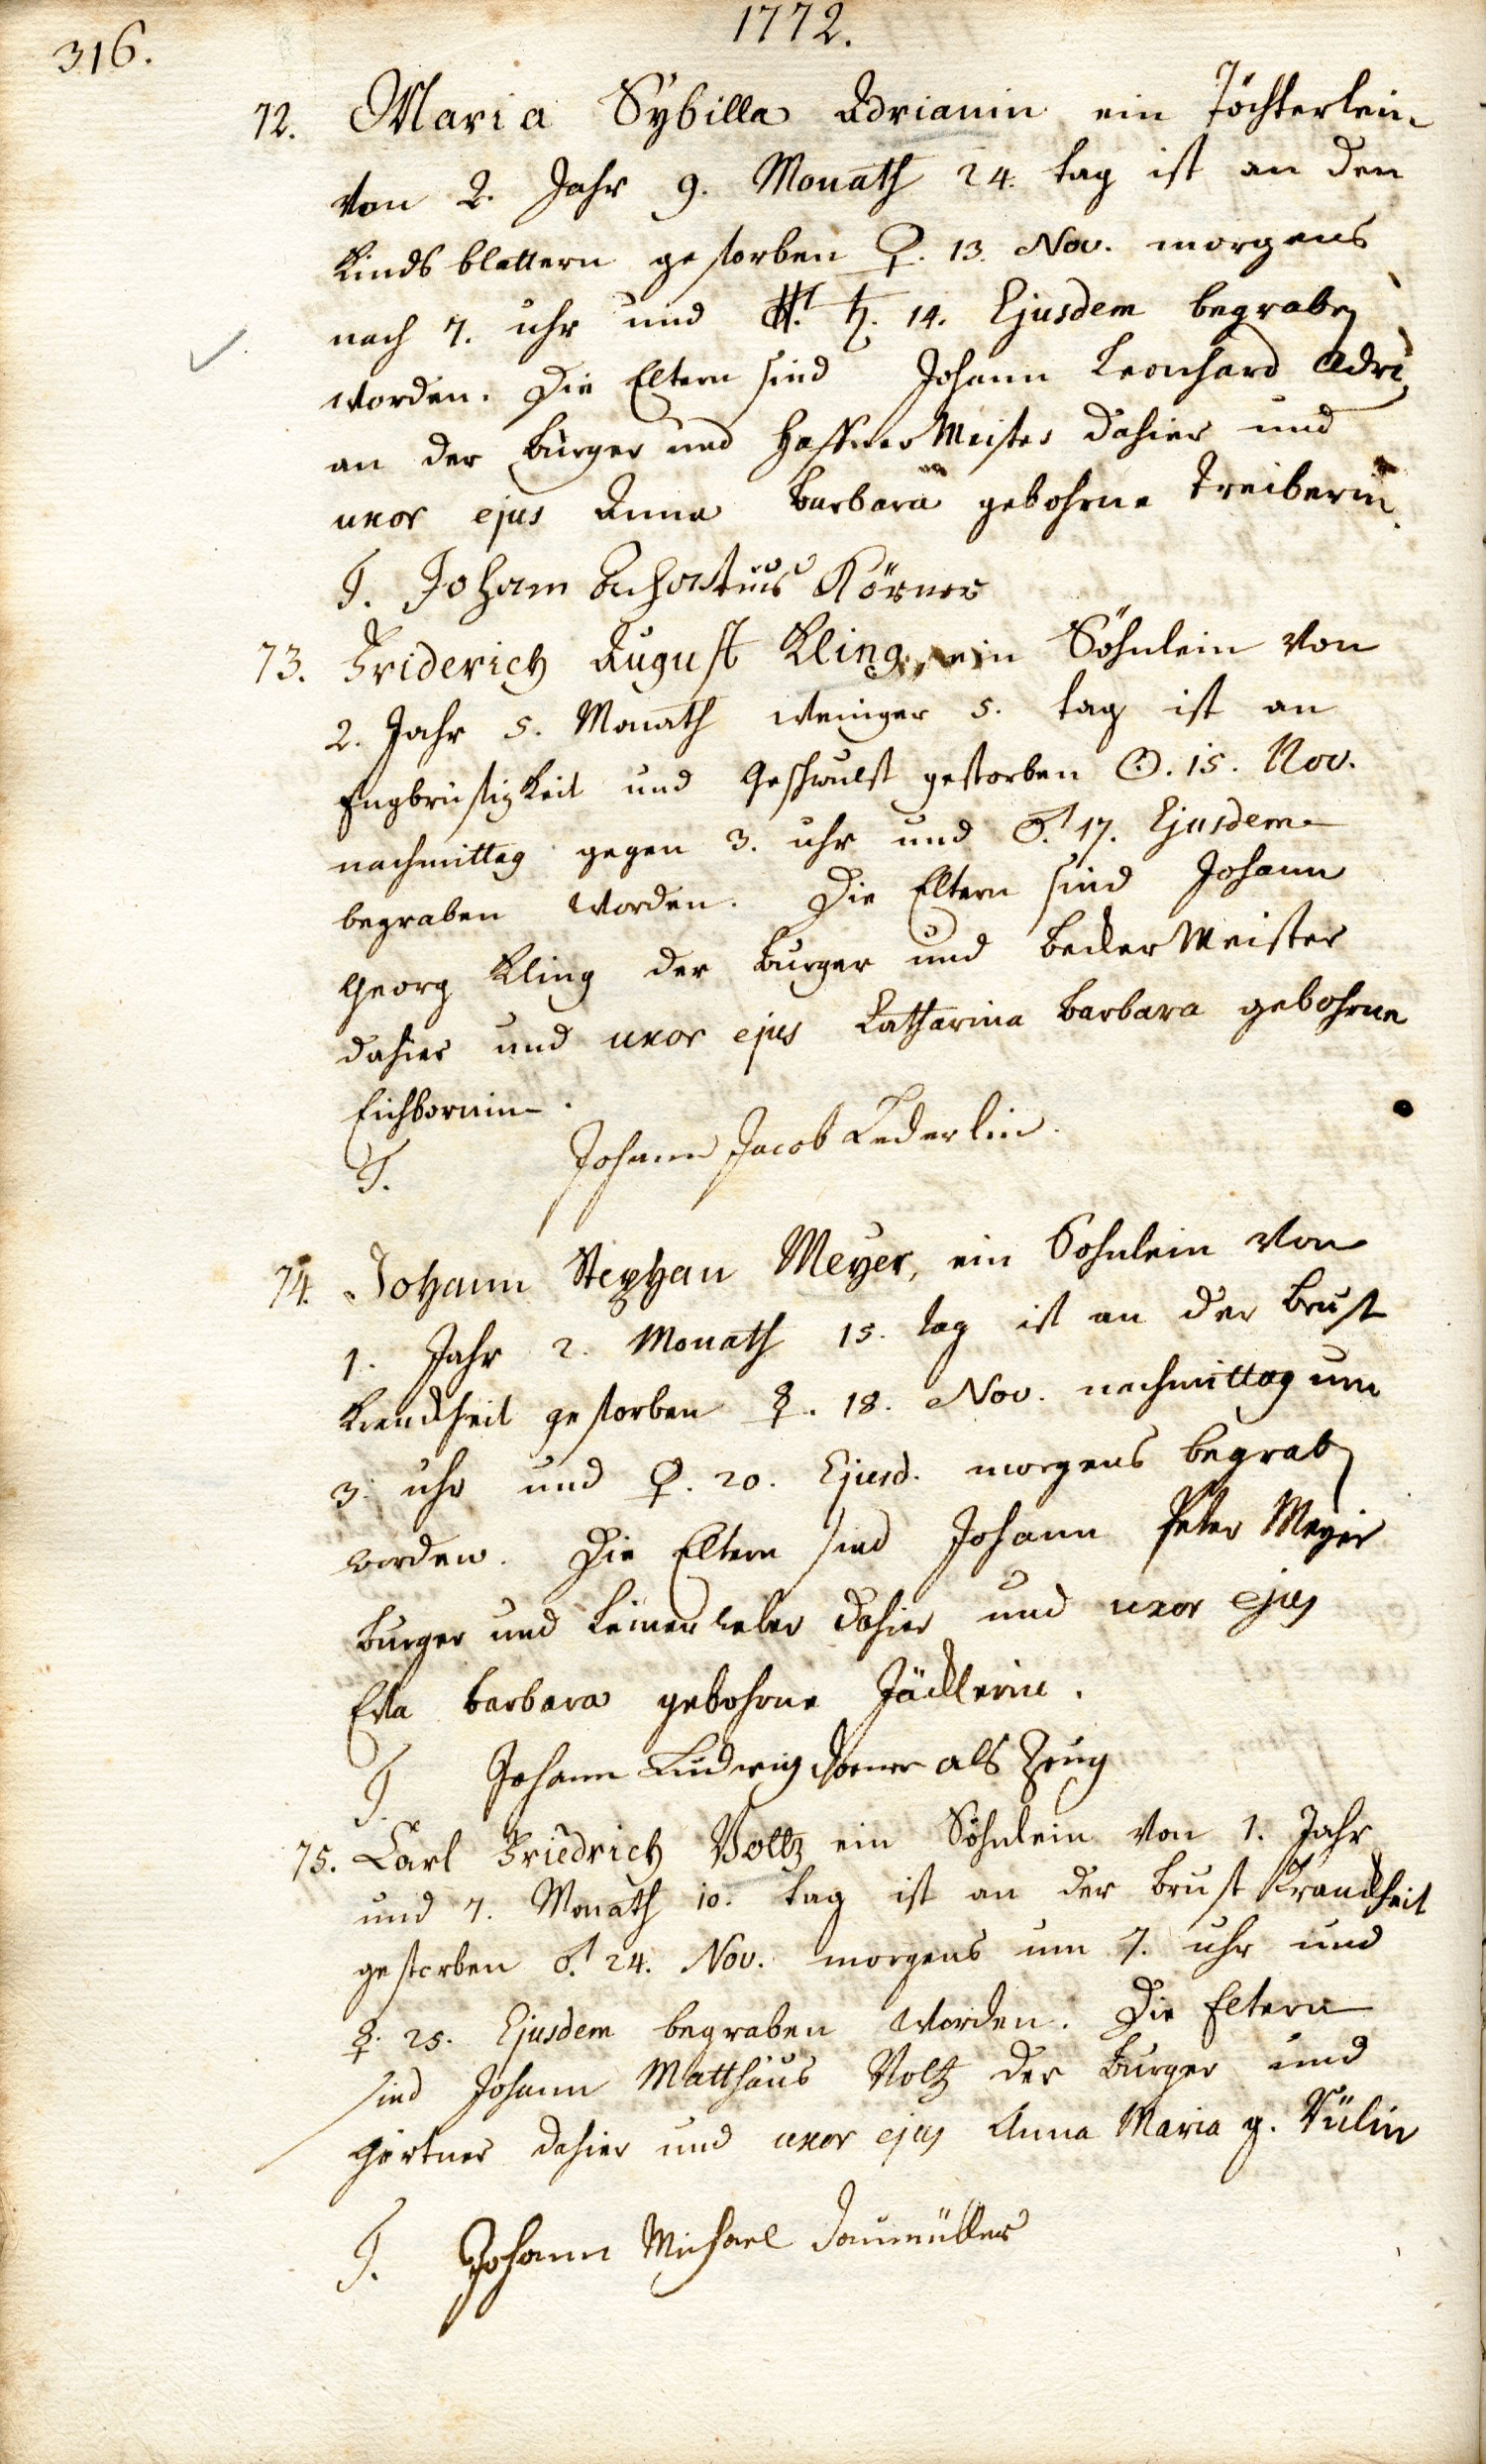 316.
1772.
72. Maria Sybilla Adrianin ein Töchterlein
von 2. Jahr 9. Monath 24. tag ist an den
Kindsblattern gestorben ♀. 13. Nov. morgens
nach 7. uhr und ♄. 14. Ejusdem begraben
worden. Die Eltern sind Johann Leonhard Adri,
an der Burger und Haffner Meister dahier und
uxor ejus Anna Barbara gebohrne Treiberin.
T. Johann Körner
73. Friderich August Kling, ein Söhnlein von
2. Jahr 5. Monath weniger 5. tag ist an
Engbrüstigkeit und Geschwulst gestorben ☉. 15. Nov.
nachmittag gegen 3. uhr und ♂. 17. Ejusdem
begraben worden. Die Eltern sind Johann
Georg Kling der Burger und Becker Meister
dahier und uxor ejus Catharina Barbara gebohrne
Eichbornin.
T. Johann Jacob Lederlin.
74. Johann Stephan Meyer, ein Sohnlein von
1. Jahr 2. Monath 15. tag ist an der Brust
Kranckheit gestorben ☿. 18. Nov. nachmittag um
3. uhr und ♀. 20. Ejusd. morgens begraben
worden. Die Eltern sind Johann Peter Meyer
Burger und Leinenweber dahier und uxor ejus
Eva Barbara gebohrne Jäcklerin.
T. Johann Ludwig als Zeug
75. Carl Friedrich Voltz ein Söhnlein von 1. Jahr
und 7. Monath 10. tag ist an der Brust Kranckheit
gestorben ♂. 24. Nov. morgens um 7. uhr und
☿. 25. Ejusdem begraben worden. Die Eltern
sind Johann Matthäus Voltz der Burger und
Gärtner dahier und uxor ejus Anna Maria g. Vülin
T. Johann Michael Daumüller